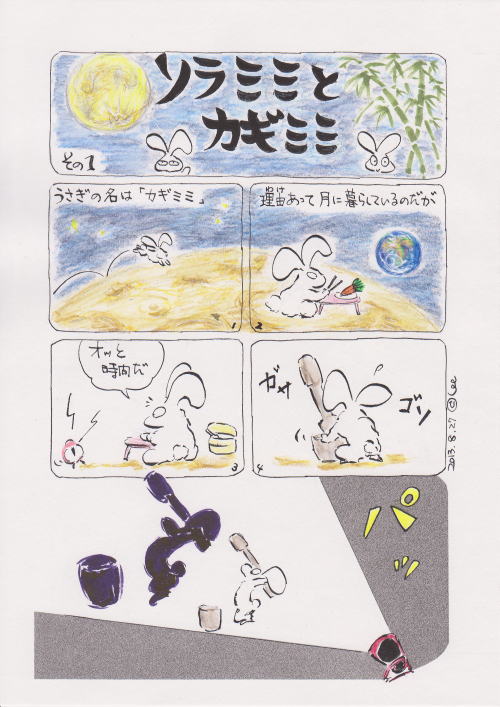 ソラミミと
カギミミ
その1
うさぎの名は「カギミミ」
1
理由あって月に暮らしているのだが
2
オッと
時間だ
3
ガサ
ゴソ
4
2013.8.27 ©Lee
パッ